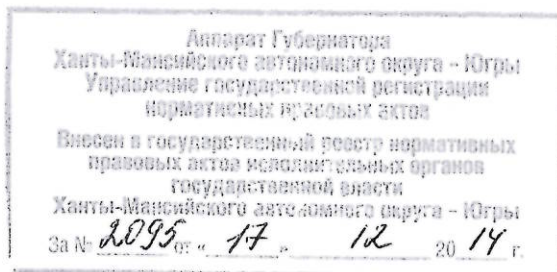 Аппарат Губернатора
Ханты-Мансийского автономного округа – Югры
Управление государственной регистрации
нормативных правовых актов
Внесен в государственный реестр нормативных
правовых актов исполнительных органов
государственной власти
Ханты-Мансийского автономного округа – Югры
За № 2095 от « 17 » 12 20 14 г.